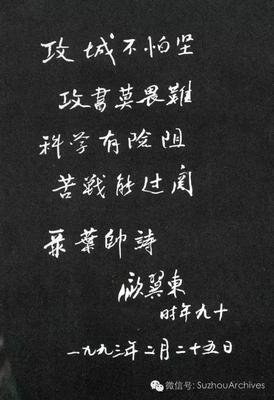 攻城不怕坚
攻書莫畏難
科学有险阻
苦战能过関
录葉帥詩
顾翼東
时年九十
一九九三年二月二十五日
微信号: SuzhouArchives